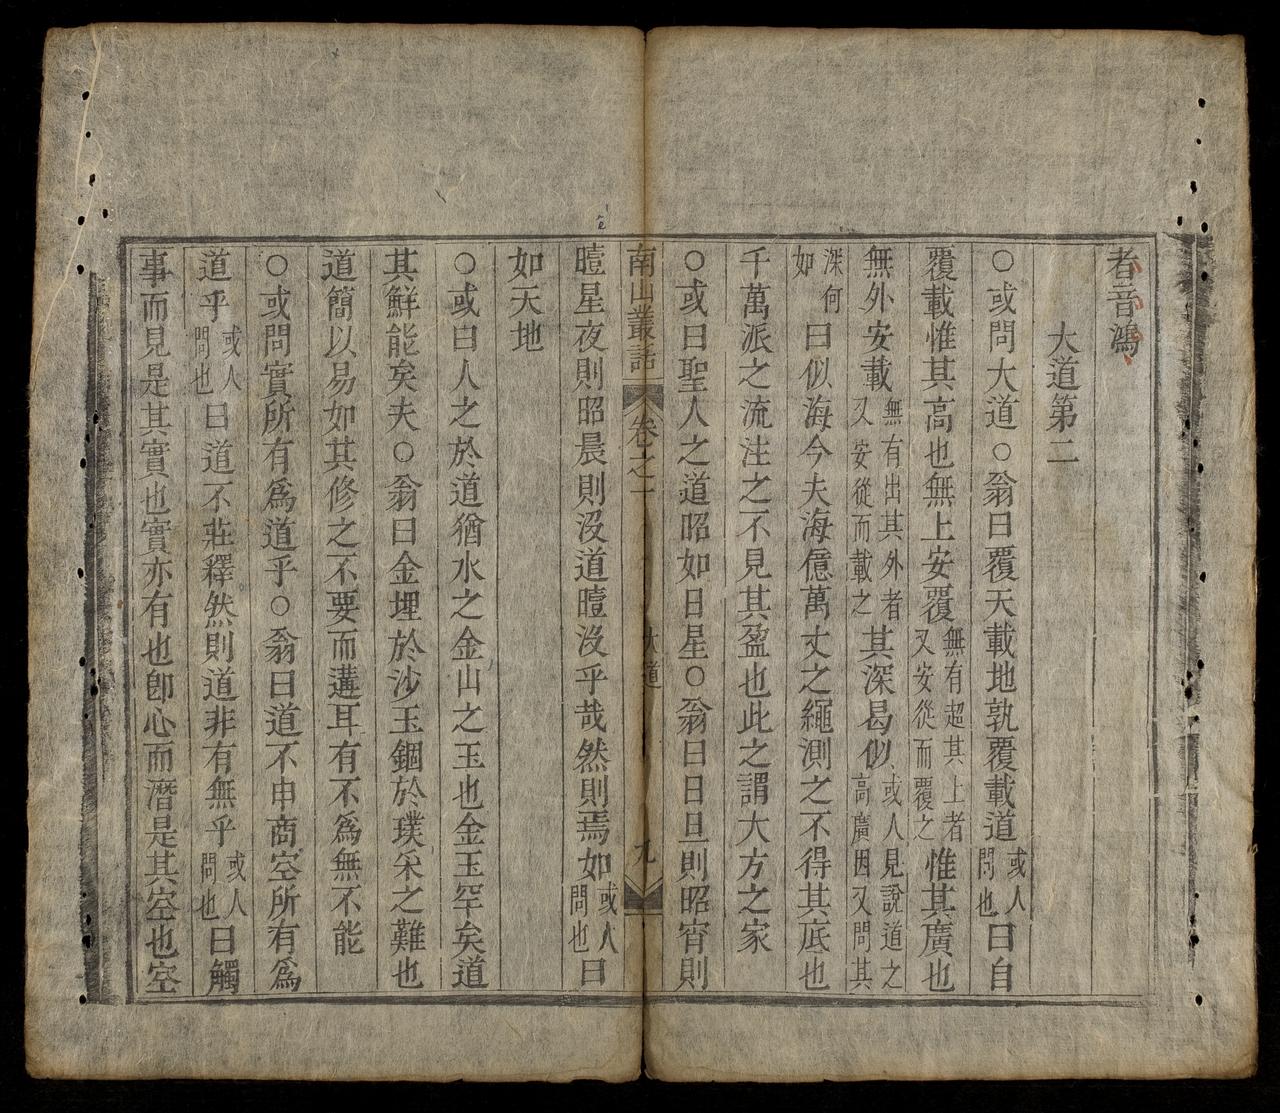 者音鴻
大道第二
○或問大道○翁曰覆天載地孰覆載道或人問也曰自
覆載惟其高也無上安覆無有超其上者又安從而覆之惟其廣也
無外安載無有出其外者又安從而載之其深曷似或人見說道之高廣因又問其
深何如曰似海今夫海億萬丈之繩測之不得其底也
千萬派之流注之不見其盈也此之謂大方之家
○或曰聖人之道昭如日星○翁曰日旦則昭宵則
曀星夜則昭晨則沒道曀沒乎哉然則焉如或人問也曰
如天地
○或曰人之於道猶水之金山之玉也金玉罕矣道
其鮮能矣夫○翁曰金埋於沙玉錮於璞采之難也
道簡以易如其修之不要而遘耳有不爲無不能
○或問實所有爲道乎○翁曰道不申商空所有爲
道乎或人問也曰道不莊釋然則道非有無乎或人問也曰觸
事而見是其實也實亦有也卽心而潛是其空也空
南山叢話
卷之一
大道
九